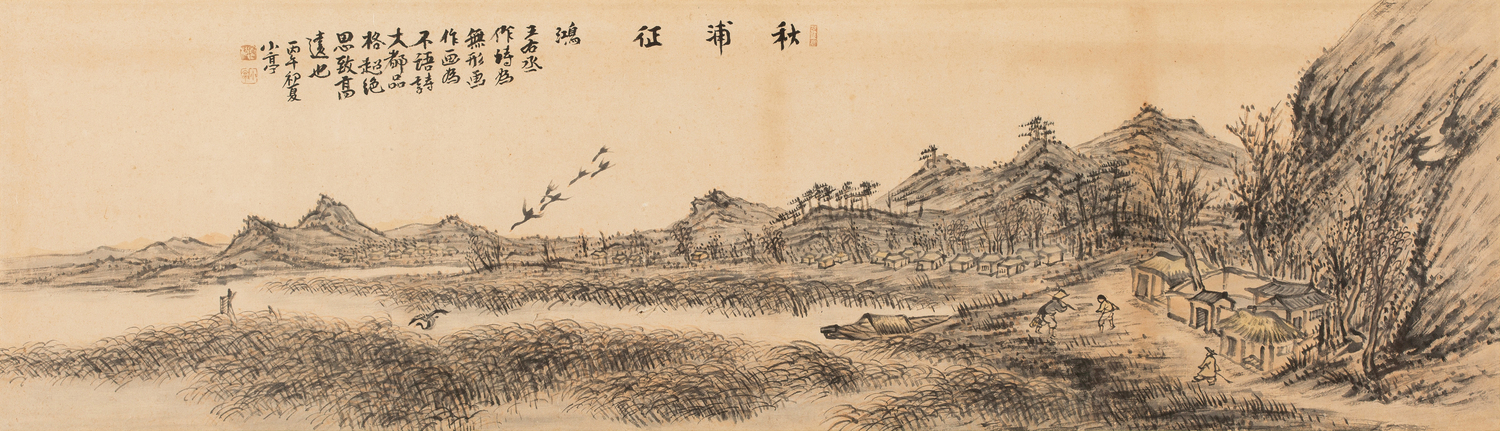 秋浦征鴻
王右丞
作詩為
無形画
作画為
不語詩
大都品
格超絶
思致高
遠也
丙午初夏
小亭